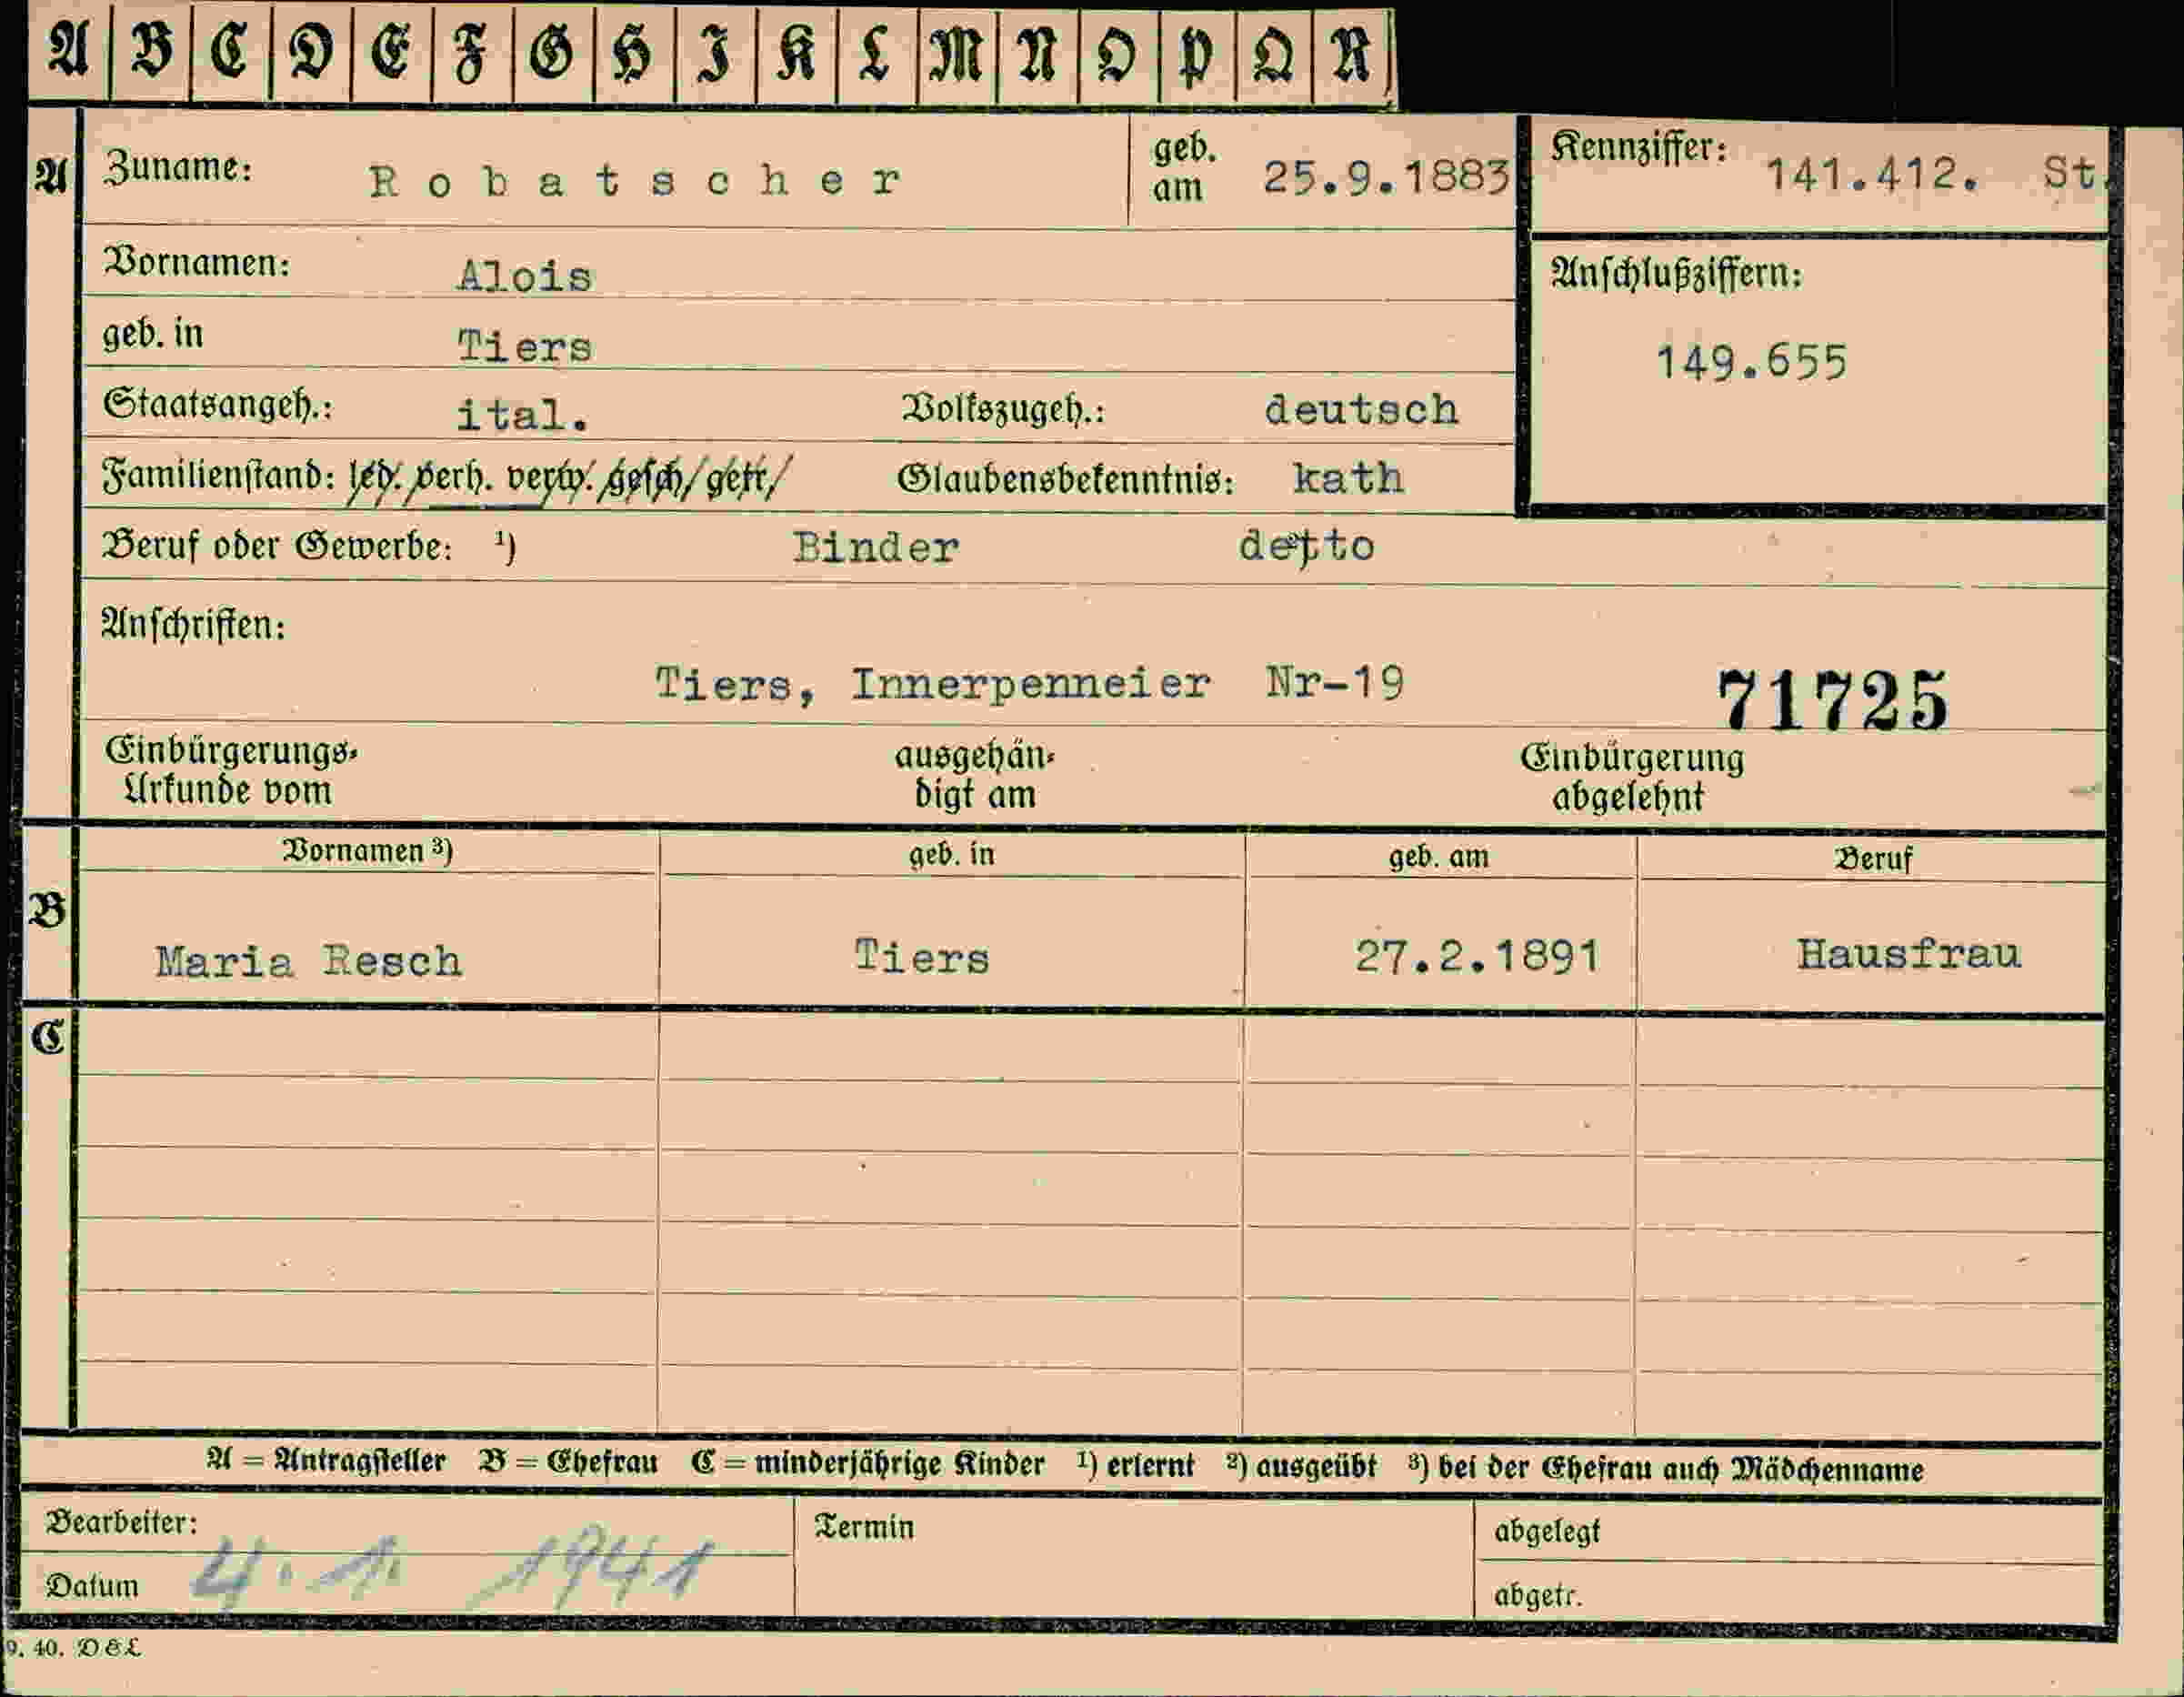 A B C D E F G H I K L M N O P Q R
A Zuname: Robatscher geb. am 25.9.1883 Kennziffer: 141.412. St.
Vornamen: Alois
Anschlußziffern:
geb. in Tiers
149.655
Staatsangeh.: ital. Volkszugeh.: deutsch
Familienstand: led. verh. verw. gesch/ getr/ Glaubensbekenntnis: kath
Beruf oder Gewerbe: ¹) Binder detto
Anschriften:
Tiers, Innerpenneier Nr-19 71725
Einbürgerungs- ausgehän- Einbürgerung
Urkunde vom digt am abgelehnt
Vornamen ³) geb. in geb. am Beruf
B
Maria Resch Tiers 27.2.1891 Hausfrau
C
A = Antragsteller B = Ehefrau C = minderjährige Kinder ¹) erlernt ²) ausgeübt ³) bei der Ehefrau auch Mädchenname
Bearbeiter: Termin abgelegt
Datum 4. 1. 1941 abgetr.
9. 40. DEL